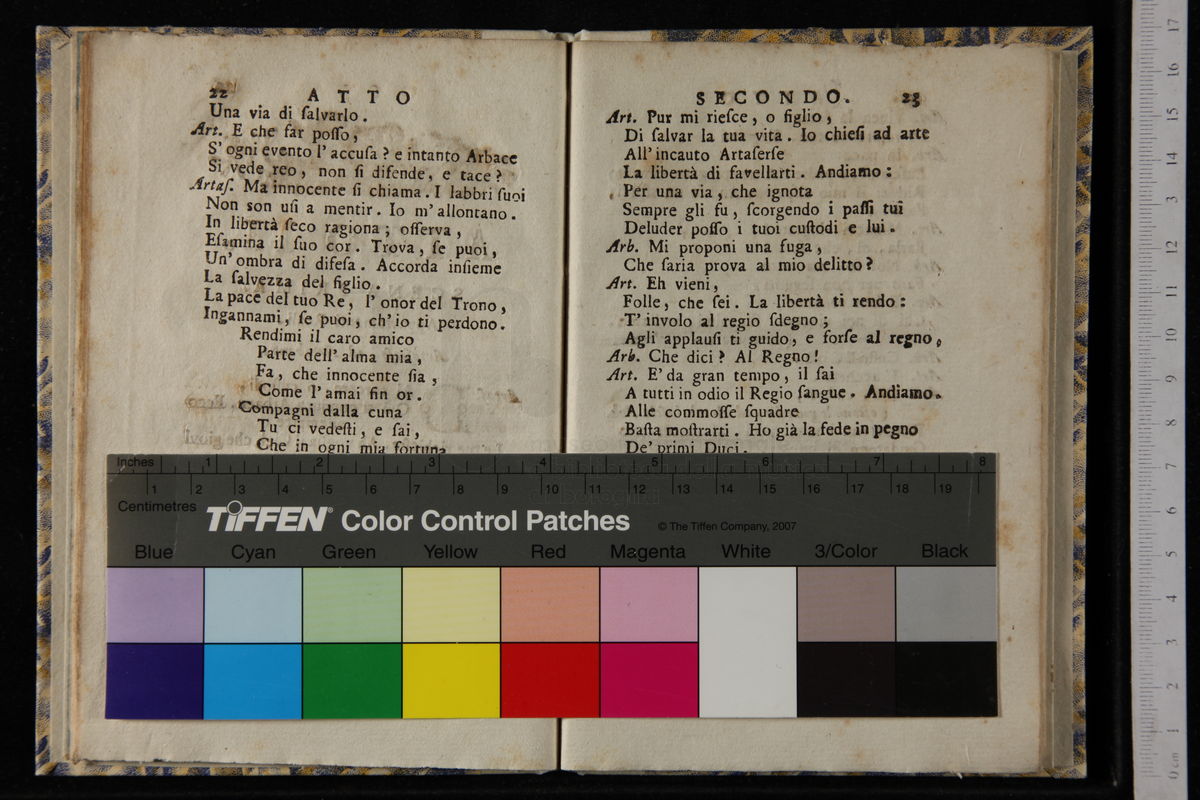 22 ATTO
Una via di ſalvarlo.
Art. E che far poſſo,
S' ogni evento l' accuſa? e intanto Arbace
Si vede reo, non ſi difende, e tace?
Artaſ. Ma innocente ſi chiama. I labbri ſuoi
Non son uſi a mentir. Io m' allontano.
In libertà ſeco ragiona; oſſerva,
Eſamina il ſuo cor. Trova, ſe puoi,
Un' ombra di difeſa. Accorda inſieme
La ſalvezza del figlio.
La pace del tuo Re, l' onor del Trono,
Ingannami, ſe puoi, ch' io ti perdono.
Rendimi il caro amico
Parte dell' alma mia,
Fa, che innocente ſia,
Come l' amai fin or.
Compagni dalla cuna
Tu ci vedeſti, e ſai,
Che in ogni mia fortuna
SECONDO. 23
Art. Pur mi rieſce, o figlio,
Di ſalvar la tua vita. Io chieſi ad arte
All' incauto Artaſerſe
La libertà di favellarti. Andiamo:
Per una via, che ignota
Sempre gli fu, ſcorgendo i paſſi tui
Deluder poſſo i tuoi cuſtodi e lui.
Arb. Mi proponi una fuga,
Che ſaria prova al mio delitto?
Art. Eh vieni,
Folle, che ſei. La libertà ti rendo:
T' involo al regio ſdegno;
Agli applauſi ti guido, e forſe al regno.
Arb. Che dici? Al Regno!
Art. E' da gran tempo, il ſai
A tutti in odio il Regio ſangue. Andiamo.
Alle commoſſe ſquadre
Baſta moſtrarti. Ho già la fede in pegno
De' primi Duci.
Inches 1 2 3 4 5 6 7 8
1 2 3 4 5 6 7 8 9 10 11 12 13 14 15 16 17 18 19
Centimetres
TIFFEN® Color Control Patches © The Tiffen Company, 2007
Blue Cyan Green Yellow Red Magenta White 3/Color Black
17
16
15
14
13
12
11
10
9
8
7
6
5
4
3
2
1
0 cm